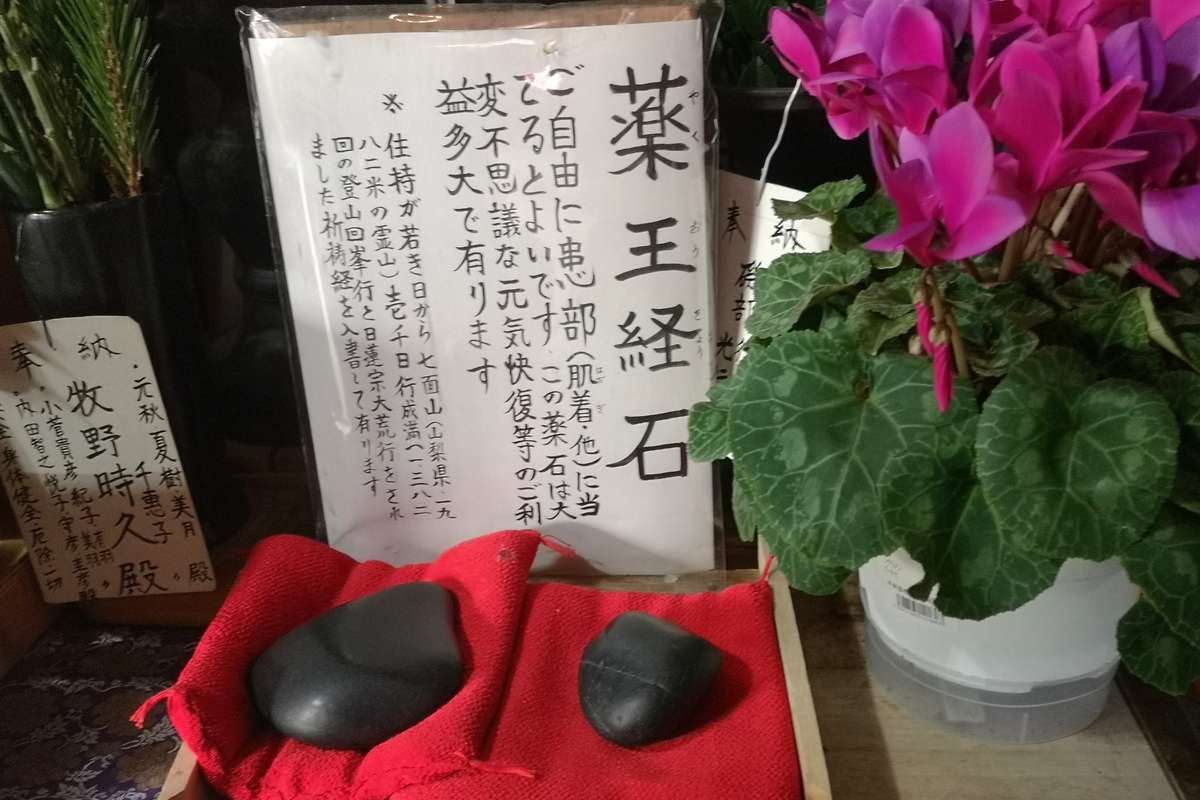 薬王経石
やくおうきょう
ご自由に患部(肌着・他)に当
はだぎ
てるとよいです。この薬石は大
変不思議な元気快復等のご利
益多大で有ります
※住持が若き日から七面山(山梨県・一九
八二米の霊山)壱千日行成満(一三八二
回の登山回峯行と日蓮宗大荒行をを永
ました祈祷経を入書して有ります
奉納
奉納
・元秋夏樹美月殿
千恵子〃
牧野時久殿